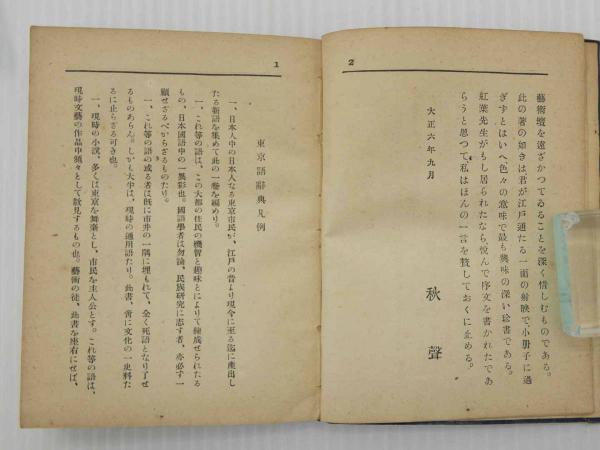 2
藝術壇を遠ざかつてゐることを深く惜しむものである。
此の著の如きは君が江戸通たる一面の射映で、小册子に過
ぎずとはいへ、色々の意味で最も興味の深い絵書である。
紅葉先生がもし居られたなら、悦んで序文を書かれたであ
らうと思つて、私はほんの一言を贅しておくに止める。
大正六年九月
秋聲
1
東京語辭典凡例
一、日本人中の日本人なる東京市民が、江戸の昔より現今に至る迄に産出し
たる新語を集めて此の一巻を編めり。
一、これ等の語は、この大都の住民の機智と趣味とによりて錬成せられたる
もの、日本國語中の一異彩也。國語學者は勿論、民族研究に志す者、亦必ず一
顧せざるべからざるものたり。
一、これ等の語の或る者は既に市井の一隅に埋もれて、全く死語となり了せ
るものあらん。しかも大半は、現時の通用語たり。此書、啻に文化の一史料た
るに止らざる可き也。
一、現時の小説、多くは東京を舞臺とし、市民を主人公とす。これ等の語は、
現時文藝の作品中須々として散見するもの也。藝術の徒、此書を座右にせば、